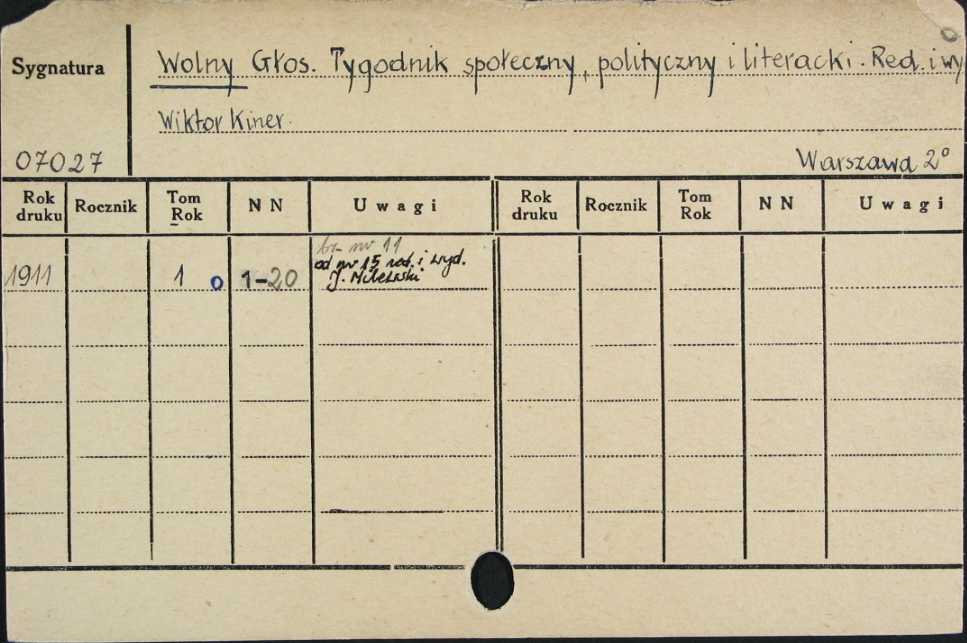 Sygnatura
Wolny Głos. Tygodnik społeczny, polityczny i literacki. Red. i wy
Wiktor Kiner.
07027
Warszawa 2°
Rok druku Rocznik Tom Rok NN Uwagi Rok druku Rocznik Tom Rok NN Uwagi
br nr 11
1911 1 o 1-20 od nr 15 red. i wyd.
J. Milewski